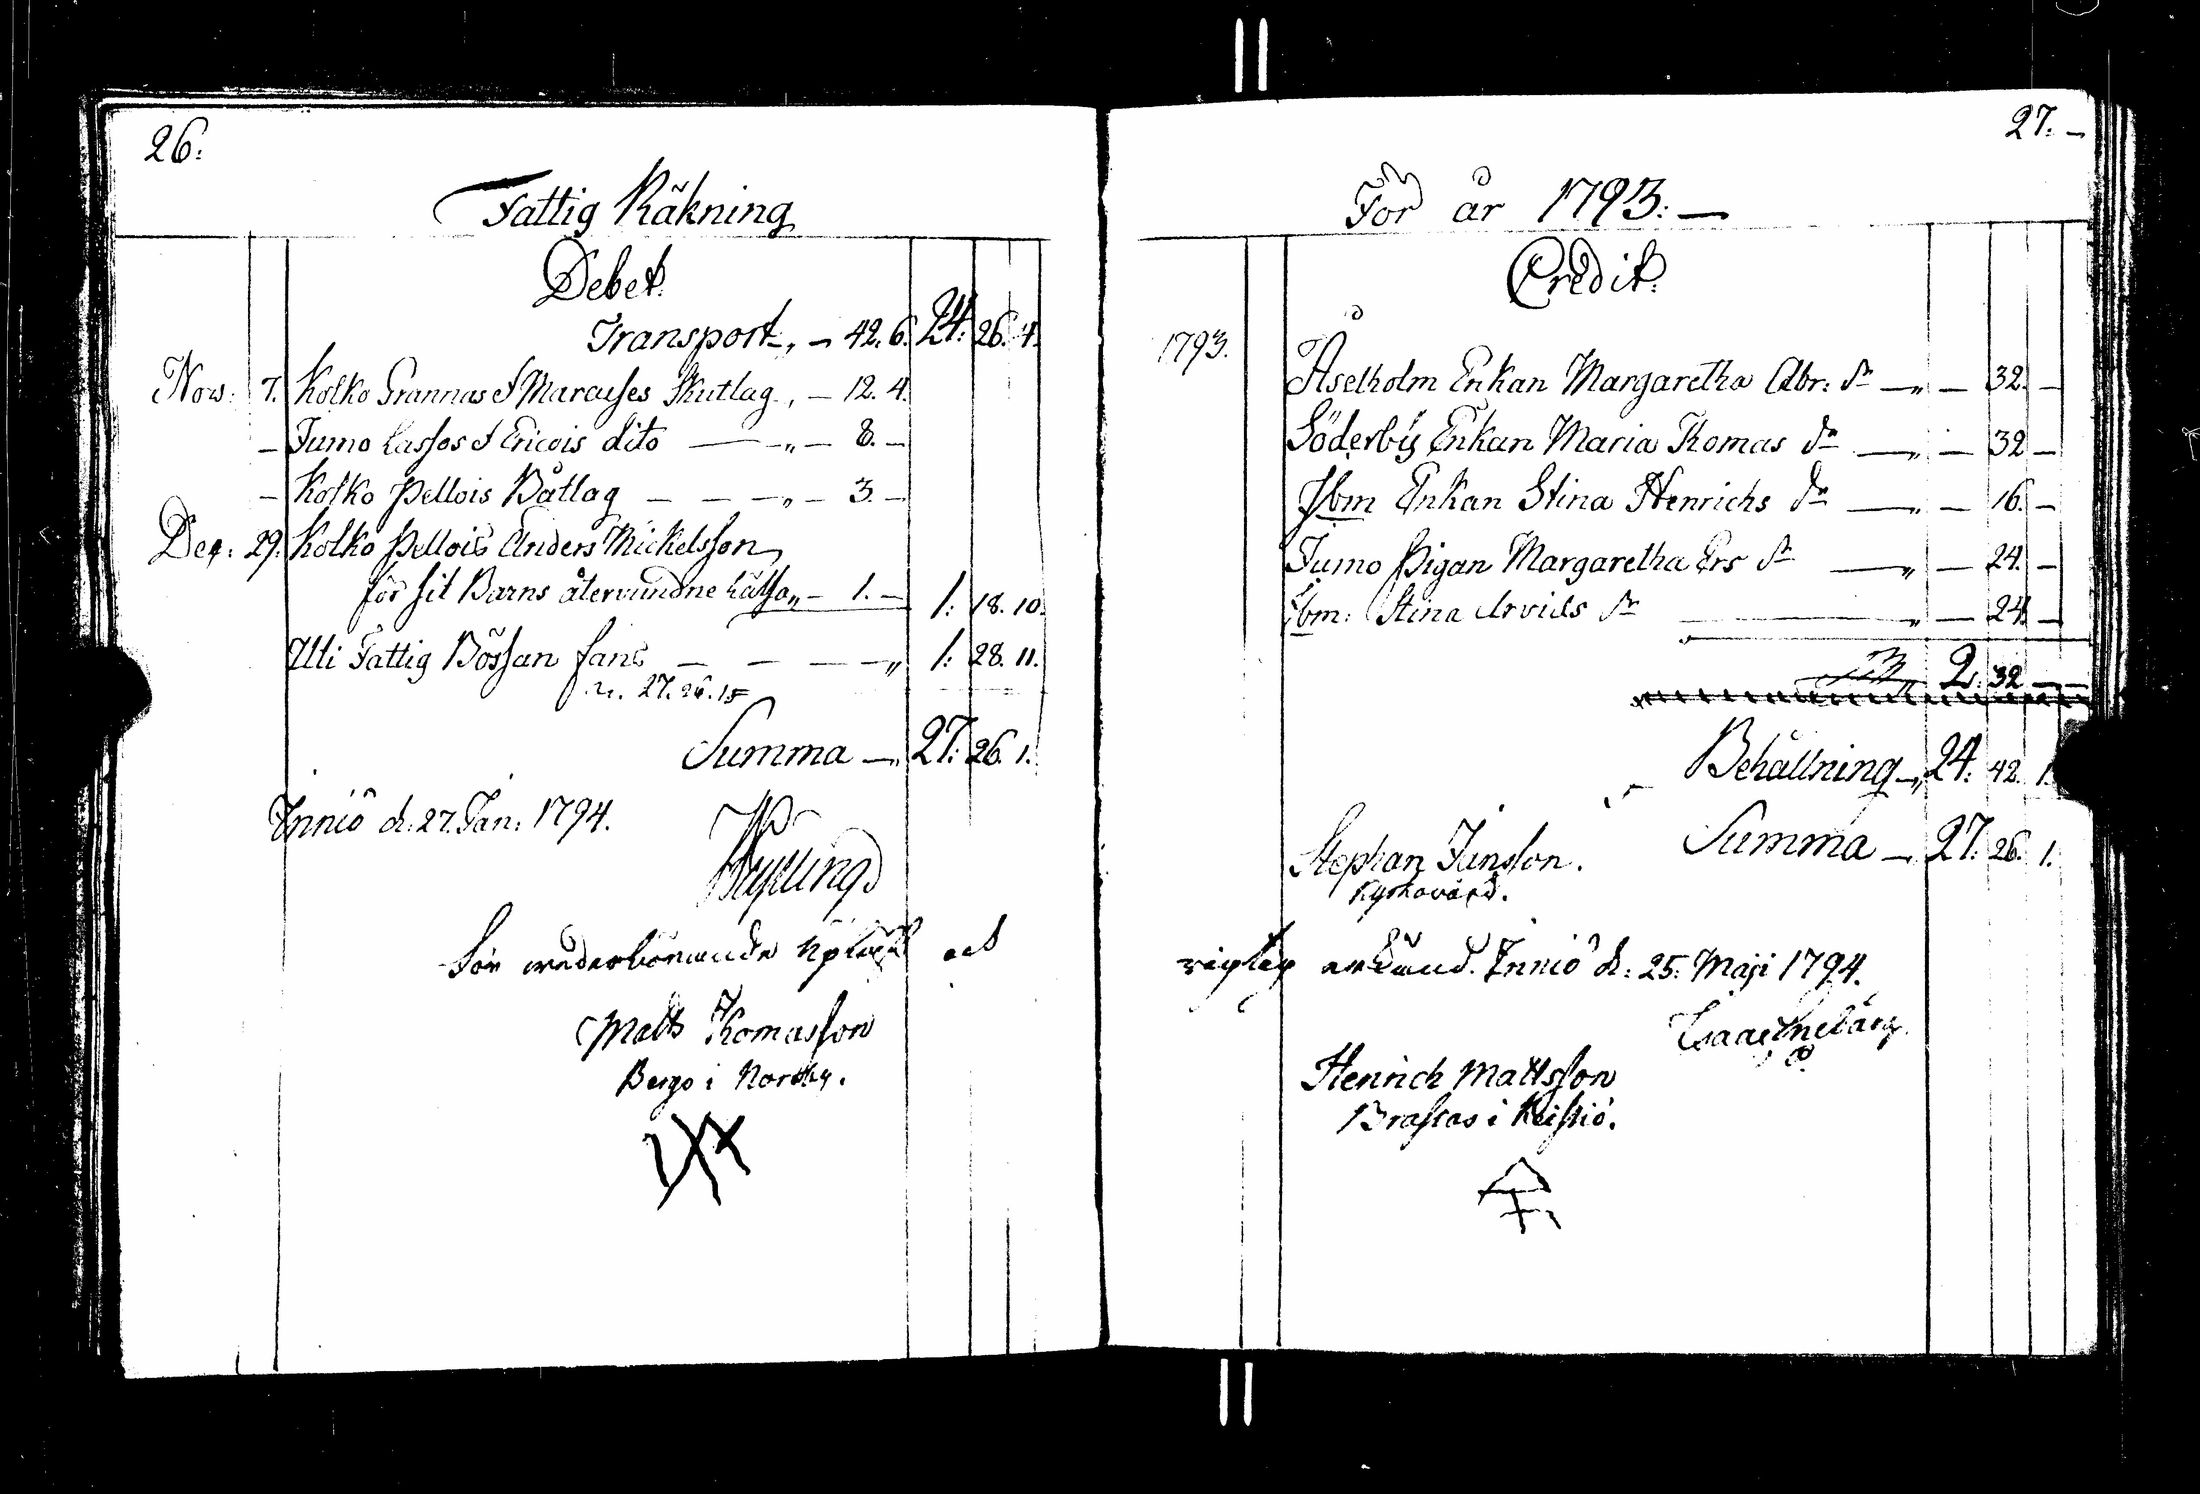 26.
Fattig Räkning
Debet.
Transport „ — 42. 6. 24. 26. 4.
Nov: 7. Kolko Grannas & Marcuses Skutlag „ — 12. 4.
— Jumo Lassos & Ericois dito — „ — 8. —
— Kolko Pellois Båtlag — — — „ — 3. —
Dec: 29. Kolko Pellois Anders Mickelsson
för sit Barns återvundne hälsa „ — 1. — 1: 18. 10.
Uti Fattig Bössan fans — — — — „ 1: 28. 11.
27. 26. 1
Summa — „ 27: 26. 1.
Inniö d: 27. Jan: 1794.
och
Matts Thomasson
Bergo i Norrby.
27. —
För år 1793: —
Credit.
1793. Åselholm Enkan Margaretha Abr: dr — „ — 32. —
Söderby Enkan Maria Thomas dr — „ — 32 —
Ibm Enkan Stina Henrichs dr — „ — 16. —
Jumo Pigan Margaretha Ers dr — „ — 24. —
Ibm: Stina Arvids dr — „ — 24. —
2. 32 —
Behållning — „ 24. 42. 1.
Summa — 27. 26. 1.
Stephan Jansson.
Kyrkovärd.
rigtig erkänd. Inniö d: 25. Maji 1794.
Henrich Mattsson
Brastas i Keistiö.